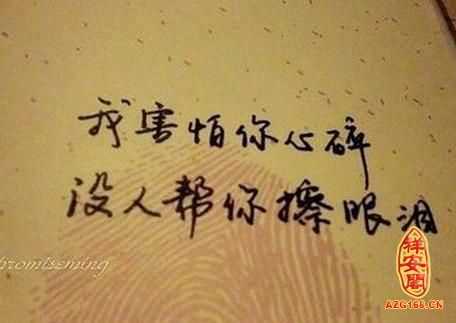 我害怕你心碎
没人帮你擦眼泪
promiseming
祥安閣
AZG168.CN